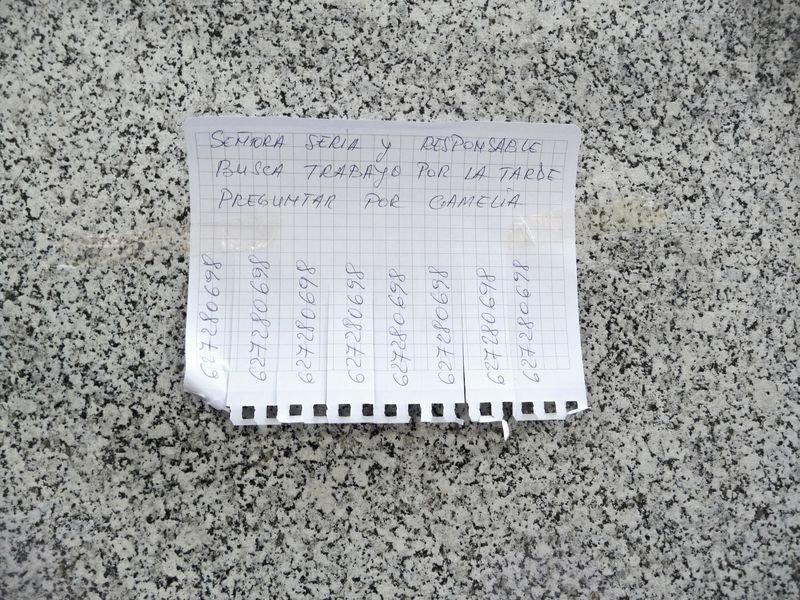 SEÑORA SERIA Y RESPONSABLE
BUSCA TRABAJO POR LA TARDE
PREGUNTAR POR CAMELIA
627280698
627280698
627280698
627280698
627280698
627280698
627280698
627280698